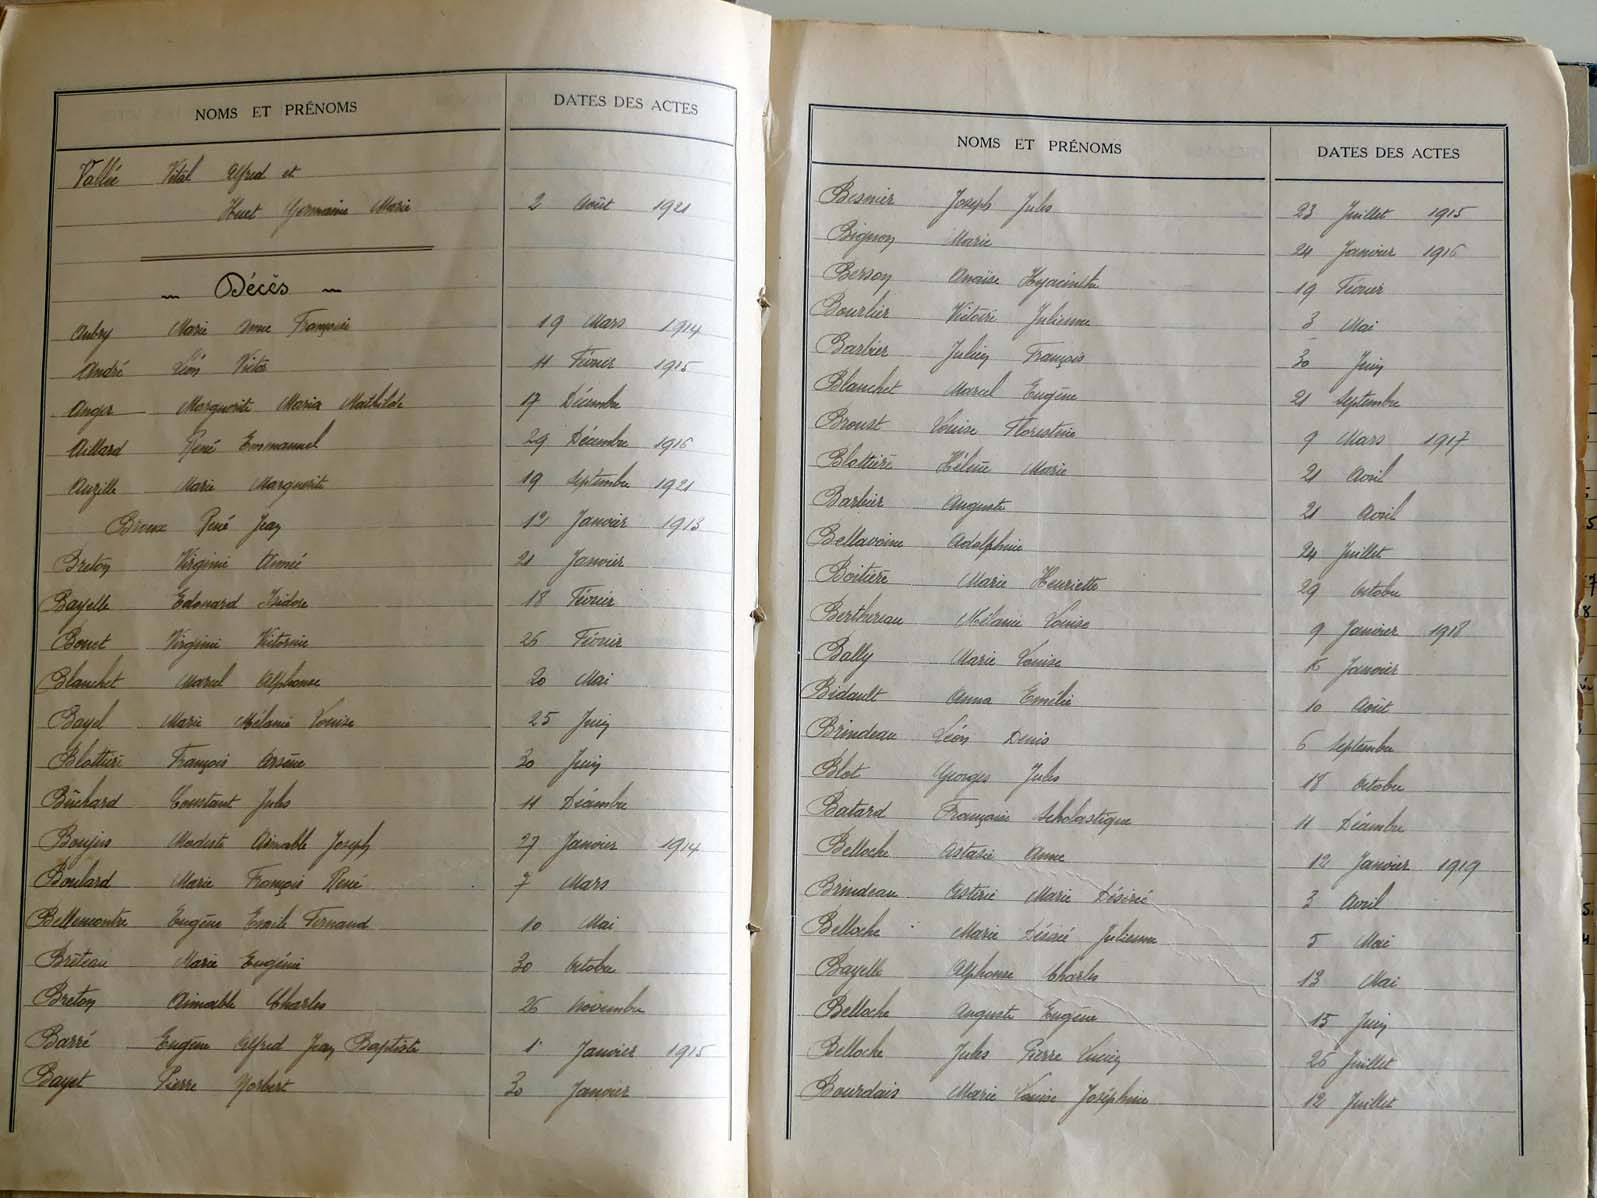 NOMS ET PRÉNOMS DATES DES ACTES
Vallée Vital Alfred et
Huet Germaine Marie 2 Août 1921
Décès
Aubry Marie Anne Françoise 19 Mars 1914
André Léon Victor 11 Février 1915
Anger Marguerite Maria Mathilde 17 Décembre
Aillard René Emmanuel 29 Décembre 1916
Auzille Marie Marguerite 19 Septembre 1921
René Jean 12 Janvier 1913
Breton Virginie Aimée 21 Janvier
Bayelle Edouard Isidore 18 Février
Virginie Victorine 26 Février
Blanchet Marcel Alphonse 20 Mai
Bayel Marie Mélanie Louise 25 Juin
Blottière François Arsène 30 Juin
Constant Jules 11 Décembre
Boujus Modeste Aimable Joseph 27 Janvier 1914
Boulard Marie François René 7 Mars
Bellemontre Eugène Emile Fernand 10 Mai
Bréteau Marie Eugénie 30 Octobre
Breton Aimable Charles 26 Novembre
Barré Eugène Alfred Jean Baptiste 1 Janvier 1915
Bayet Pierre Norbert 30 Janvier
NOMS ET PRÉNOMS DATES DES ACTES
Besnier Joseph Jules 23 Juillet 1915
Bignon Marie 24 Janvier 1916
Berson Anaïse Hyacinthe 19 Février
Bourlier Victoire Julienne 3 Mai
Barbier Julien François 30 Juin
Blanchet Marcel Eugène 21 Septembre
Broust Louise Florestine 9 Mars 1917
Blottière Hélène Marie 21 Avril
Barbier Auguste 21 Avril
Bellavoine Adolphine 24 Juillet
Boitière Marie Henriette 29 Octobre
Berthereau Mélanie Louise 9 Janvier 1918
Bally Marie Louise Janvier
Bidault Anna Emélie 10 Août
Brindeau Léon Denis 6 Septembre
Blot Georges Jules 18 Octobre
Batard Françoise Scholastique 11 Décembre
Belloche Astasie Anne 12 Janvier 1919
Brindeau Astérie Marie Désirée 3 Avril
Belloche Marie Désirée Julienne 5 Mai
Bayelle Alphonse Charles 13 Mai
Belloche Auguste Eugène 15 Juin
Belloche Jules Pierre Lucien 26 Juillet
Bourdais Marie Louise Joséphine 12 Juillet